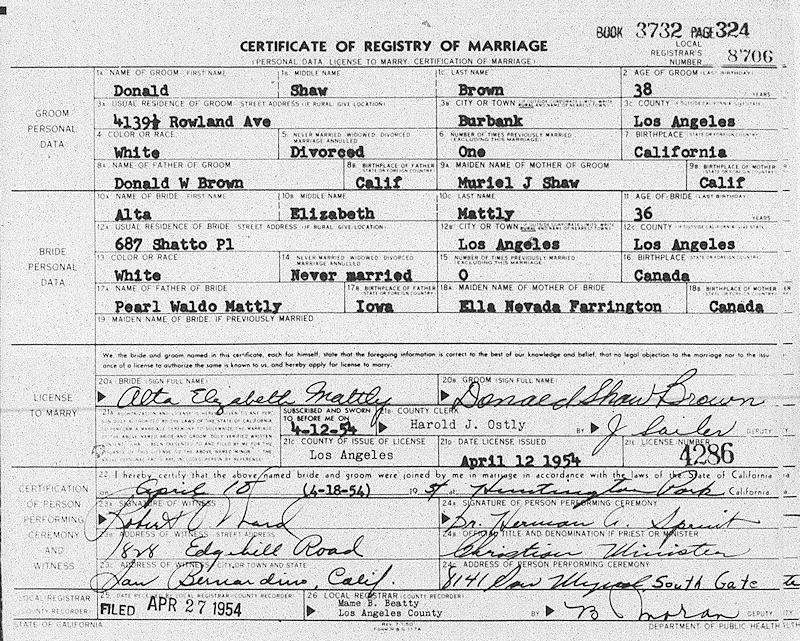 BOOK 3732 PAGE 324
CERTIFICATE OF REGISTRY OF MARRIAGE
LOCAL REGISTRAR'S NUMBER 8706
(PERSONAL DATA LICENSE TO MARRY, CERTIFICATION OF MARRIAGE)
GROOM PERSONAL DATA
1A NAME OF GROOM - FIRST NAME 1B. MIDDLE NAME 1C. LAST NAME 2 AGE OF GROOM (LAST BIRTHDAY)
Donald Shaw Brown 38 YEARS
3A USUAL RESIDENCE OF GROOM - STREET ADDRESS (IF RURAL, GIVE LOCATION) 3B CITY OR TOWN 3C COUNTY
4139½ Rowland Ave Burbank Los Angeles
4 COLOR OR RACE 5. NEVER MARRIED, WIDOWED, DIVORCED MARRIAGE ANNULLED 6 NUMBER OF TIMES PREVIOUSLY MARRIED (EXCLUDING THIS MARRIAGE) 7 BIRTHPLACE STATE OR FOREIGN COUNTRY
White Divorced One California
8A NAME OF FATHER OF GROOM 8B BIRTHPLACE OF FATHER STATE OR FOREIGN COUNTRY 9A MAIDEN NAME OF MOTHER OF GROOM 9B BIRTHPLACE OF MOTHER STATE OR FOREIGN COUNTRY
Donald W Brown Calif Muriel J Shaw Calif
BRIDE PERSONAL DATA
10A NAME OF BRIDE - FIRST NAME 10B MIDDLE NAME 10C LAST NAME 11 AGE OF BRIDE (LAST BIRTHDAY)
Alta Elizabeth Mattly 36 YEARS
12A USUAL RESIDENCE OF BRIDE STREET ADDRESS (IF RURAL, GIVE LOCATION) 12B CITY OR TOWN 12C. COUNTY
687 Shatto Pl Los Angeles Los Angeles
13 COLOR OR RACE 14 NEVER MARRIED, WIDOWED, DIVORCED MARRIAGE ANNULLED 15 NUMBER OF TIMES PREVIOUSLY MARRIED (EXCLUDING THIS MARRIAGE) 16. BIRTHPLACE STATE OR FOREIGN COUNTRY
White Never married 0 Canada
17A NAME OF FATHER OF BRIDE 17B BIRTHPLACE OF FATHER STATE OR FOREIGN COUNTRY 18A MAIDEN NAME OF MOTHER OF BRIDE 18B BIRTHPLACE OF MOTHER STATE OR FOREIGN COUNTRY
Pearl Waldo Mattly Iowa Ella Nevada Farrington Canada
19. MAIDEN NAME OF BRIDE, IF PREVIOUSLY MARRIED
LICENSE TO MARRY
We, the bride and groom named in this certificate, each for himself, state that the foregoing information is correct to the best of our knowledge and belief, that no legal objection to the marriage nor to the issu
ance of a license to authorize the same is known to us, and hereby apply for license to marry.
20A BRIDE (SIGN FULL NAME) 20B GROOM (SIGN FULL NAME)
Alta Elizabeth Mattly Donald Shaw Brown
SUBSCRIBED AND SWORN TO BEFORE ME ON 4-12-54
COUNTY CLERK Harold J. Ostly BY J Sailer DEPUTY
21C COUNTY OF ISSUE OF LICENSE 21D DATE LICENSE ISSUED 21E LICENSE NUMBER
Los Angeles April 12 1954 4286
CERTIFICATION OF PERSON PERFORMING CEREMONY AND WITNESS
22 I hereby certify that the above named bride and groom were joined by me in marriage in accordance with the laws of the State of California
on April 18 (4-18-54) 19 54 at Huntington Park California
23A SIGNATURE OF WITNESS 24A SIGNATURE OF PERSON PERFORMING CEREMONY
Robert Ward Dr. Herman
23B ADDRESS OF WITNESS - STREET ADDRESS 24B OFFICIAL TITLE AND DENOMINATION IF PRIEST OR MINISTER
1828 Edgehill Road Christian Minister
23C ADDRESS OF WITNESS, CITY OR TOWN AND STATE 24C ADDRESS OF PERSON PERFORMING CEREMONY
San Bernardino, Calif. 8141 San Miguel, South Gate
LOCAL REGISTRAR (COUNTY RECORDER)
25 DATE RECEIVED BY LOCAL REGISTRAR (COUNTY RECORDER) 26 LOCAL REGISTRAR (COUNTY RECORDER)
FILED APR 27 1954 Mame B. Beatty
Los Angeles County BY DEPUTY
STATE OF CALIFORNIA DEPARTMENT OF PUBLIC HEALTH